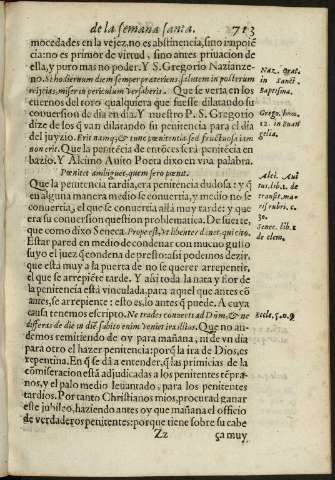 de la semana santa.
713
mocedades en la vejez, no es abstinencia, sino impotẽ
cia: no es primor de virtud, sino antes priuacion de
ella, y puro mas no poder. Y S. Gregorio Nazianze-
no. Si hodiernum diem semper præteriens, salutem in posterum
rejicias, miser in periculum
Que se veria en los
cuernos del toro qualquiera que fuesse dilatando su
conuersion de dia en dia. Y nuestro P. S. Gregorio
dize de los q̃ van dilatando su penitencia para el dia
del juyzio. Erit namq; & tunc pœnitentia sed fructuosa iam
non erit. Que la penitẽcia de entõces serà penitẽcia en
bazio. Y Alcimo Auito Poeta dixo en vna palabra.
Pœnitet ambiguè, quem serò pœnitet
Que la penitencia tardia, era penitencia dudosa: y q̃
en alguna manera medio se conuertia, y medio no se
conuertia, el que se conuertia allà muy tarde: y que
era su conuersion question problematica. De suerte,
que como dixo Seneca.
Estar pared en medio de condenar con mucho gusto
suyo el juez q̃ condena de presto: assi podemos dezir,
que està muy a la puerta de no se querer arrepentir,
el que se arrepiẽte tarde. Y assi toda la nata y flor de
la penitencia està vinculada, para aquel que antes cõ
antes, se arrepiente: esto es, lo antes q̃ puede. A cuya
causa tenemos escripto. Ne tardes conuerti ad Dñm, & ne
differas de die in diẽ, subito enim veniet ira illius. Que no an-
demos remitiendo de oy para mañana, ni de vn dia
para otro el hazer penitencia: porq̃ la ira de Dios, es
repentina. En q̃ se dà a entender, q̃ las primicias de la
comiseracion està adjudicadas a los penitentes tẽpra-
nos, y el palo medio leuantado, para los penitentes
tardios. Por tanto Christianos mios, procurad ganar
este jubileo, haziendo antes oy que mañana el officio
de verdaderos penitentes: porque tiene sobre su cabe
Zz
ça muy
Naz. orat.
in sanct.
Baptisma.
Grego. hom.
12. in Euan
gelia.
Alci. Aui
tus, lib. 2. de
30.
Senec. lib. 1
de clem.
Eccle. 5. n. 9